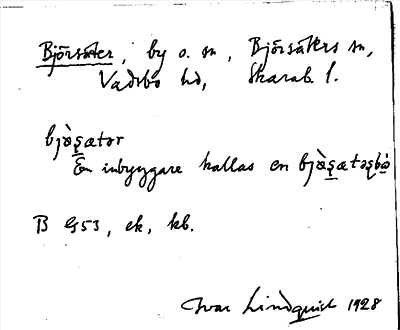 Björsäter, by o. sn, Björsäters sn,
Vadsbo hd, Skarab. l.
bjö̀s̨ætər
En inbyggare kallas en bjö̀s̨ætəs̨bo
B G53, ek, kb.
Ivar Lindquist 1928